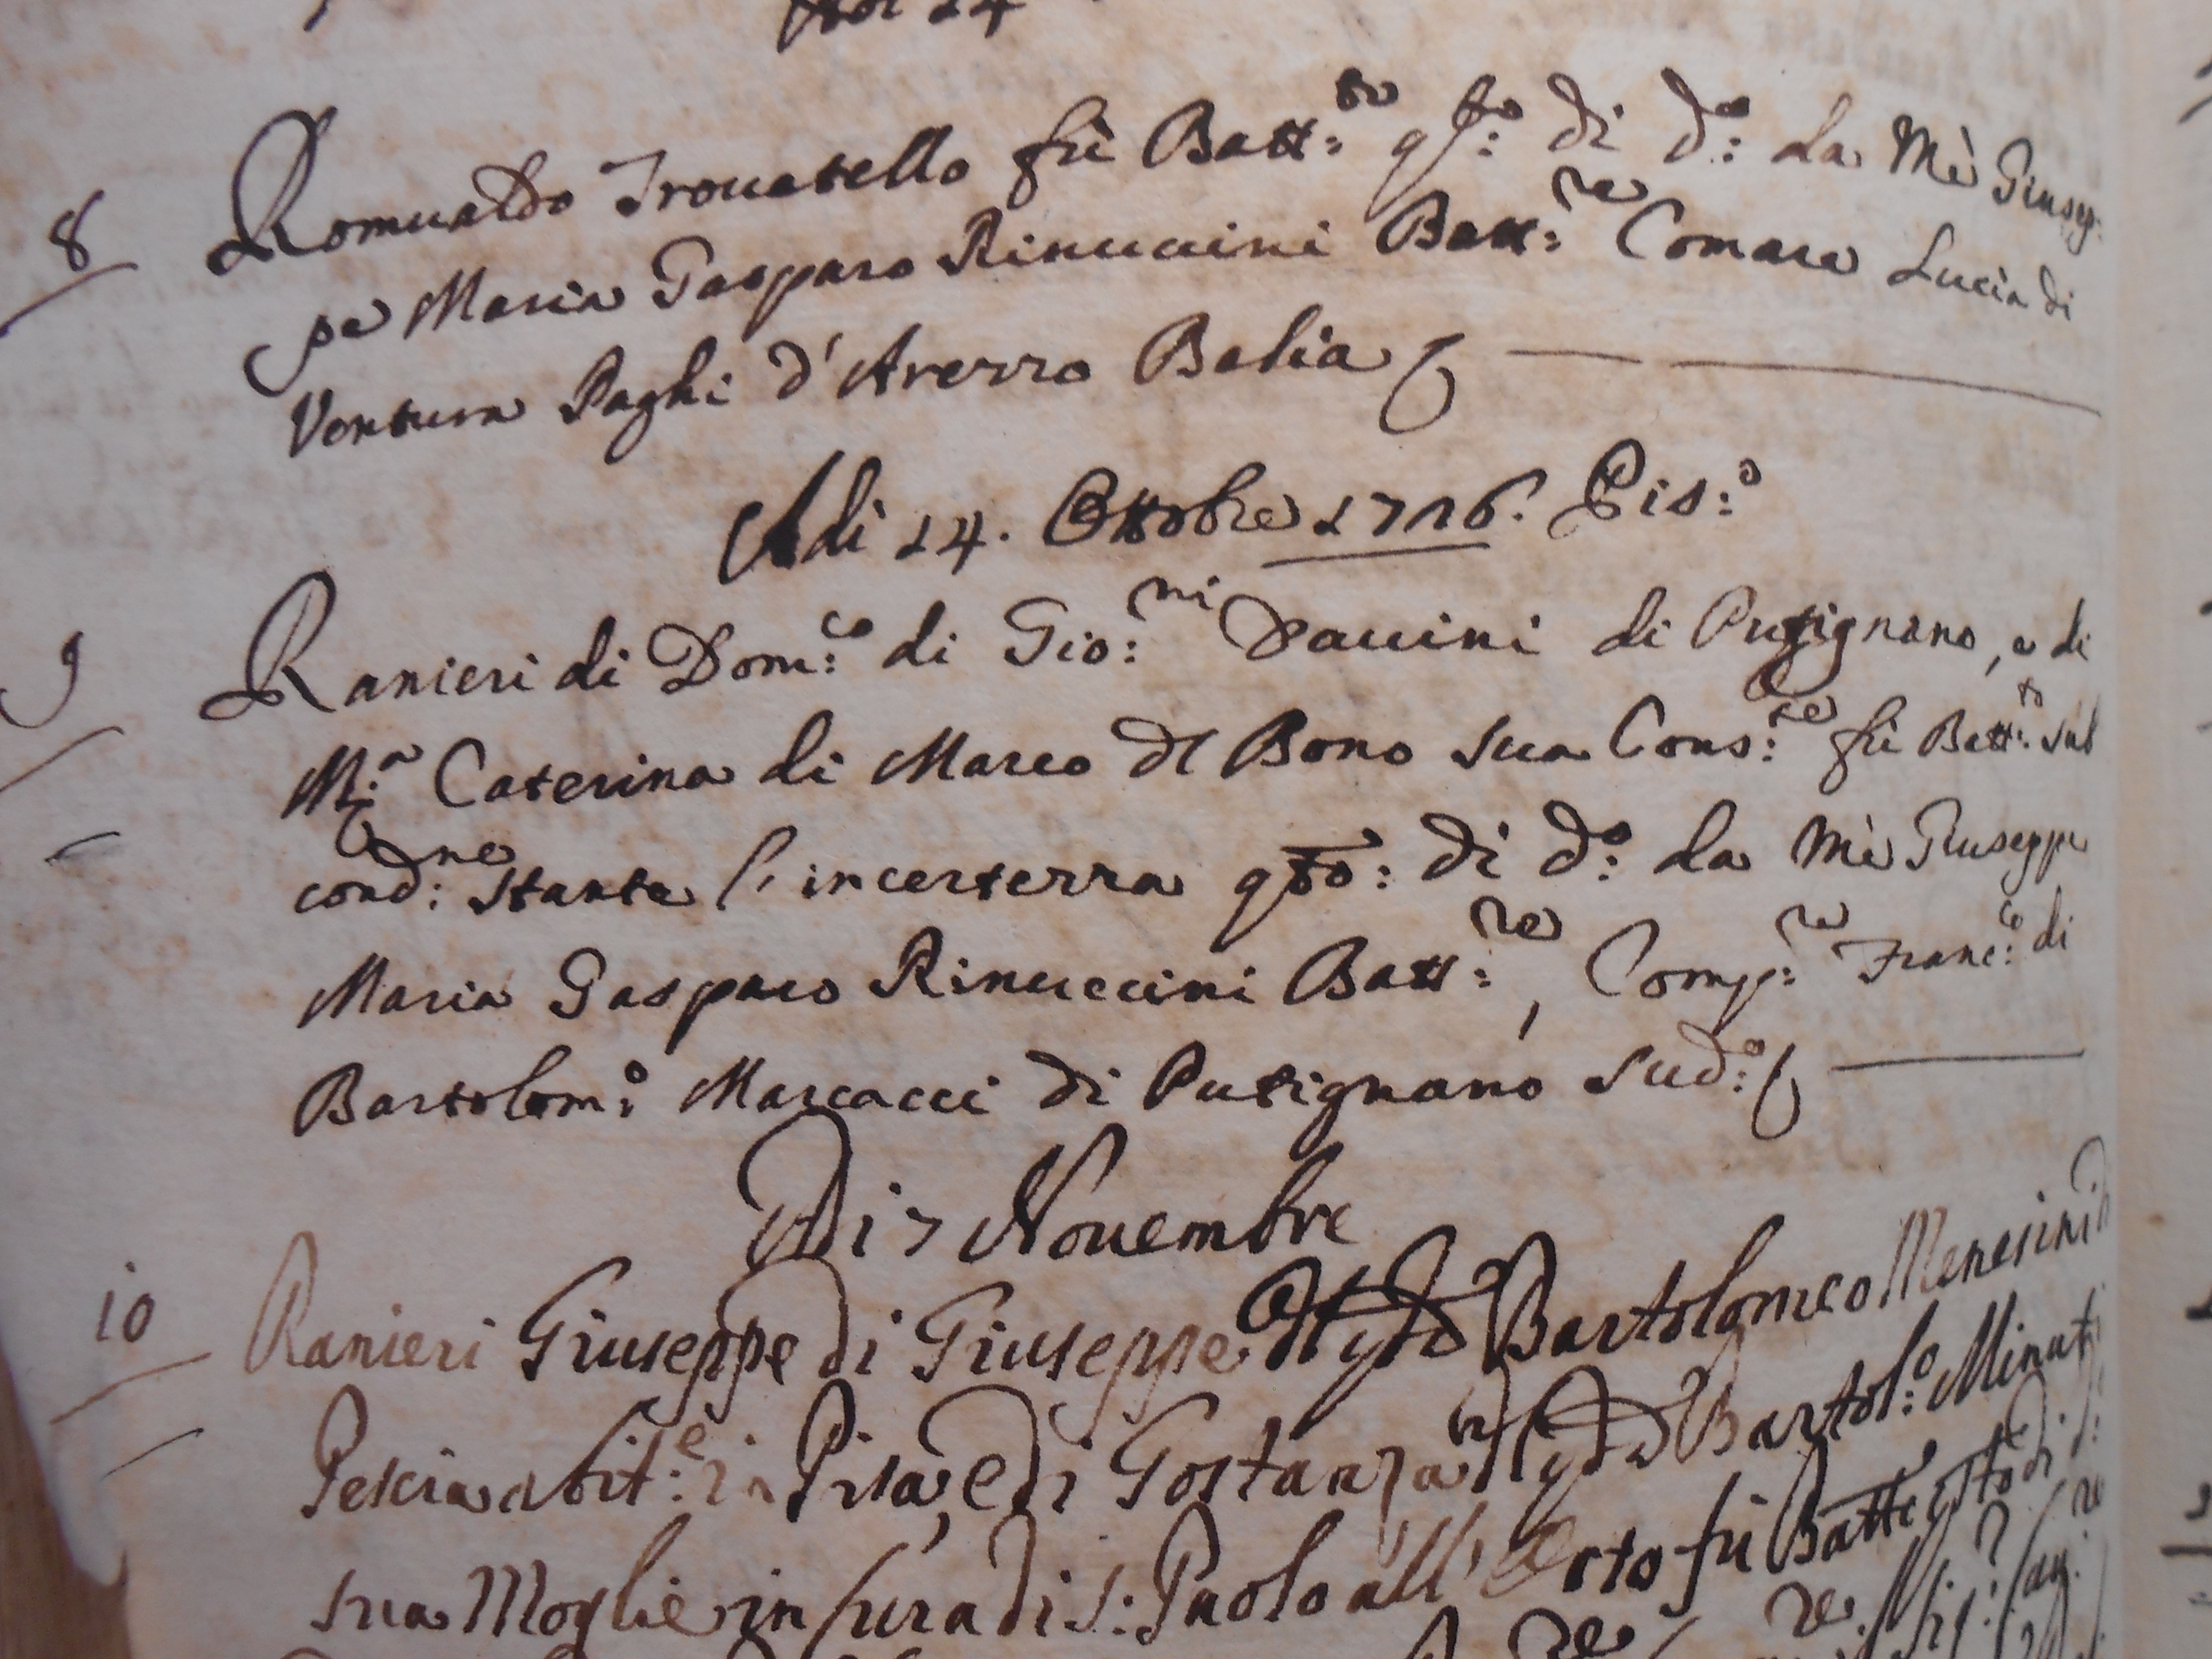 8 Romualdo Trouatello fù Batt:to q.sto: di d.o: da Mè Giusep:
pe Maria Gasparo Rinuccini Batt:re Comare Lucia di
Ventura Paghi d'Arezzo Balia
Adi 14. Ottobre 1716. Pis:o
9 Ranieri di Dom:co di Gio:ni Dauini di Putignano, e di
M:a Caterina di Marco dl Bono sua Cons:te fù Batt:to sub
cond:ne stante l'incertezza qsto: di d:o da Mè Giuseppe
Maria Gasparo Rinuccini Batt:re, Comp:re Franc:co di
Bartolom:o Marcacci di Putignano sud:o
Adi 7 Nouembre
10 Ranieri Giuseppe di Giuseppe dl qdo Bartolomeo Menesini
Pescia abit:e in Pisa, e di Gostanza dl qdo Bartol:o Minuti
sua Moglie in cura di S: Paolo all'Orto fù Batt:e